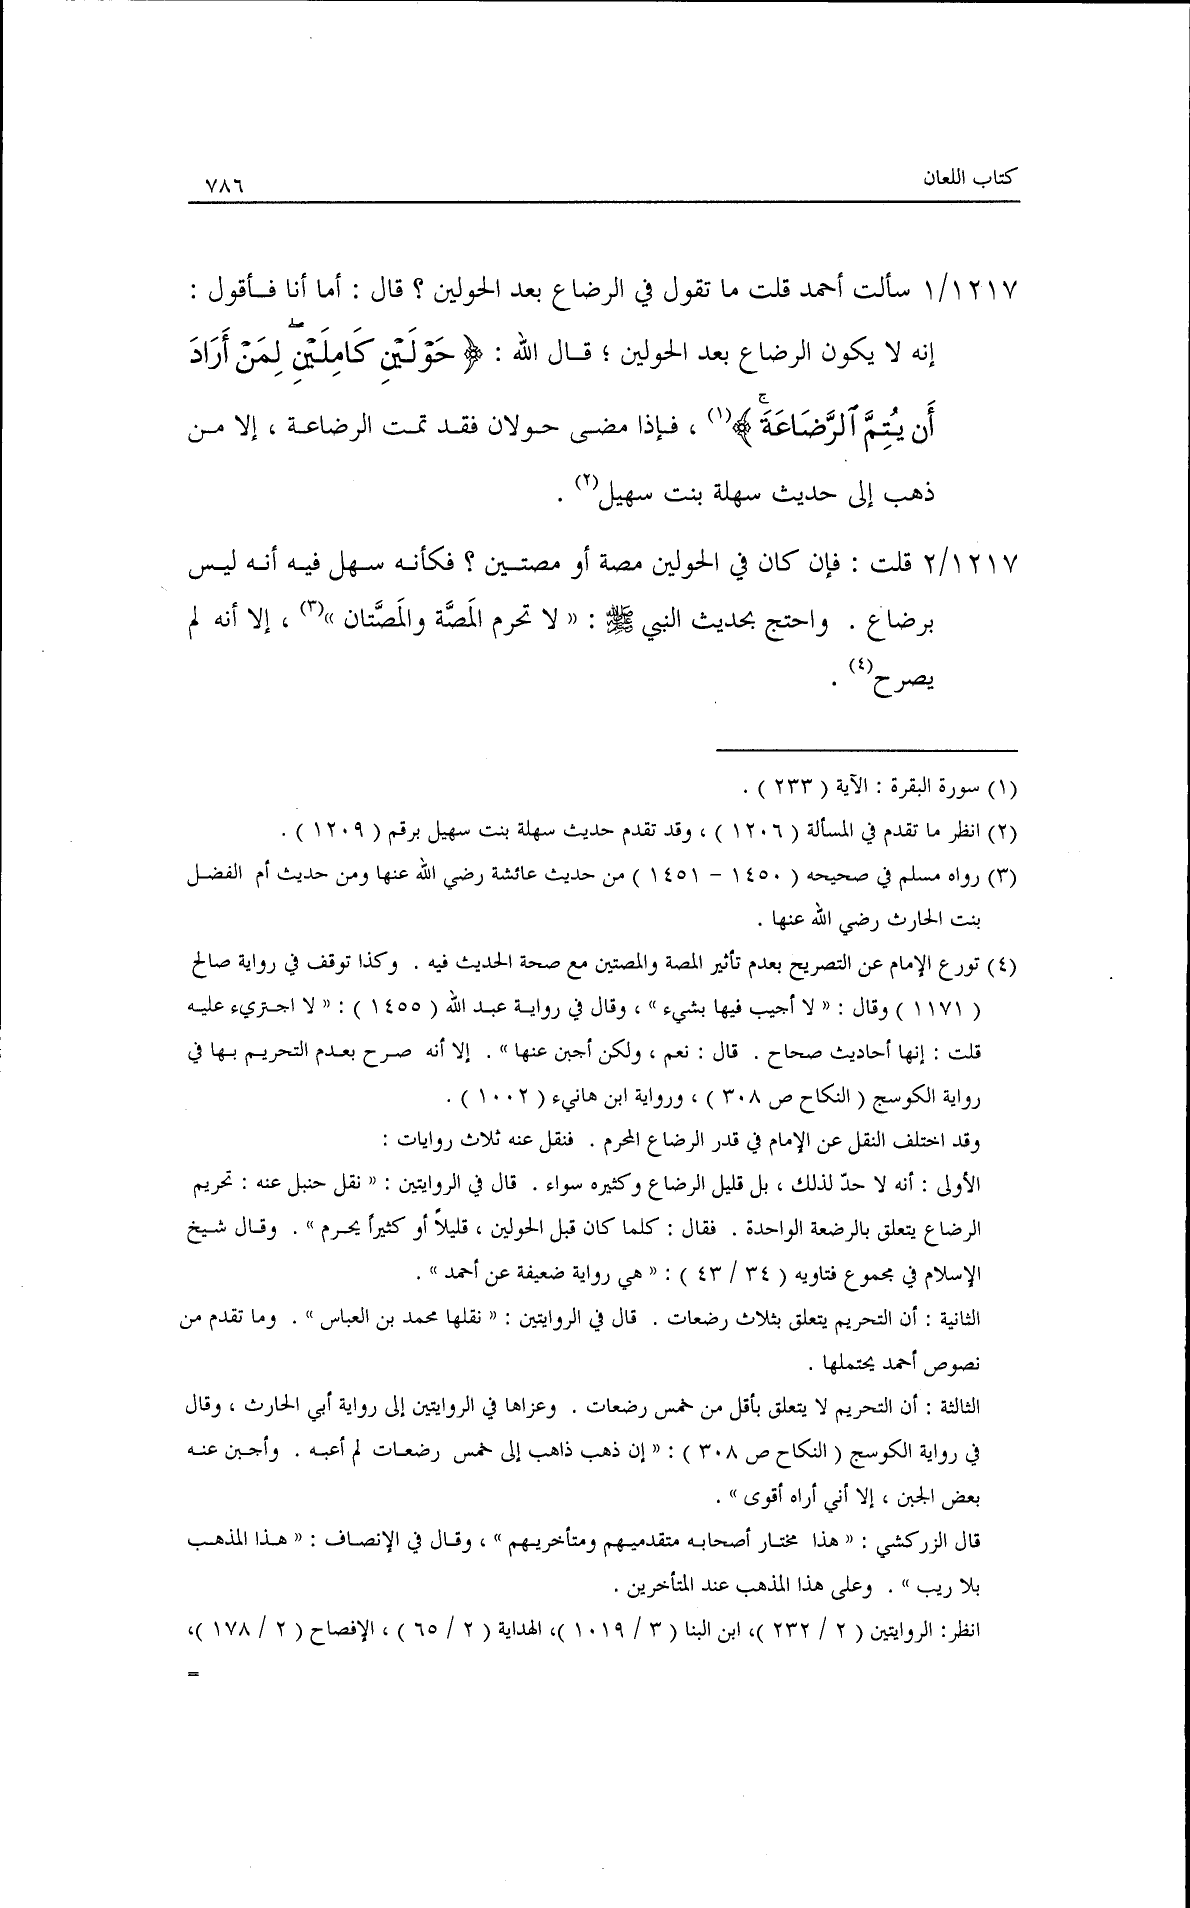 كتاب اللعان
٧٨٦
١/١٢١٧ سألت أحمد قلت ما تقول في الرضاع بعد الحولين ؟ قال : أما أنا فأقول :
إنه لا يكون الرضاع بعد الحولين ؛ قال الله : ﴿ حَوْلَيْنِ كَامِلَيْنِ ۖ لِمَنْ أَرَادَ
أَن يُتِمَّ ٱلرَّضَاعَةَ ۚ ﴾(١) ، فإذا مضى حولان فقد تمت الرضاعة ، إلا من
ذهب إلى حديث سهلة بنت سهيل(٢) .
٢/١٢١٧ قلت : فإن كان في الحولين مصة أو مصتين ؟ فكأنه سهل فيه أنه ليس
برضاع . واحتج بحديث النبي ﷺ : « لا تحرم المَصَّة والمَصَّتان »(٣) ، إلا أنه لم
يصرح(٤) .
(١) سورة البقرة : الآية ( ٢٣٣ ) .
(٢) انظر ما تقدم في المسألة ( ١٢٠٦ ) ، وقد تقدم حديث سهلة بنت سهيل برقم ( ١٢٠٩ ) .
(٣) رواه مسلم في صحيحه ( ١٤٥٠ – ١٤٥١ ) من حديث عائشة رضي الله عنها ومن حديث أم الفضل
بنت الحارث رضي الله عنها .
(٤) تورع الإمام عن التصريح بعدم تأثير المصة والمصتين مع صحة الحديث فيه . وكذا توقف في رواية صالح
( ١١٧١ ) وقال : « لا أجيب فيها بشيء » ، وقال في رواية عبد الله ( ١٤٥٥ ) : « لا اجتريء عليه
قلت : إنها أحاديث صحاح . قال : نعم ، ولكن أجبن عنها » . إلا أنه صرح بعدم التحريم بها في
رواية الكوسج ( النكاح ص ٣٠٨ ) ، ورواية ابن هانيء ( ١٠٠٢ ) .
وقد اختلف النقل عن الإمام في قدر الرضاع المحرم . فنقل عنه ثلاث روايات :
الأولى : أنه لا حدّ لذلك ، بل قليل الرضاع وكثيره سواء . قال في الروايتين : « نقل حنبل عنه : تحريم
الرضاع يتعلق بالرضعة الواحدة . فقال : كلما كان قبل الحولين ، قليلاً أو كثيراً يحرم » . وقال شيخ
الإسلام في مجموع فتاويه ( ٣٤ / ٤٣ ) : « هي رواية ضعيفة عن أحمد » .
الثانية : أن التحريم يتعلق بثلاث رضعات . قال في الروايتين : « نقلها محمد بن العباس » . وما تقدم من
نصوص أحمد يحتملها .
الثالثة : أن التحريم لا يتعلق بأقل من خمس رضعات . وعزاها في الروايتين إلى رواية أبي الحارث ، وقال
في رواية الكوسج ( النكاح ص ٣٠٨ ) : « إن ذهب ذاهب إلى خمس رضعات لم أعبه . وأجبن عنه
بعض الجبن ، إلا أني أراه أقوى » .
قال الزركشي : « هذا مختار أصحابه متقدميهم ومتأخريهم » ، وقال في الإنصاف : « هذا المذهب
بلا ريب » . وعلى هذا المذهب عند المتأخرين .
انظر: الروايتين ( ٢ / ٢٣٢ )، ابن البنا ( ٣ / ١٠١٩ )، الهداية ( ٢ / ٦٥ ) ، الإفصاح ( ٢ / ١٧٨ )،
=